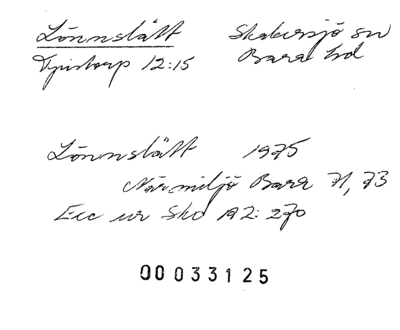 Lönnslätt Skabersjö sn
Tjustorp 12:15 Bara hd
Lönnslätt 1975
Närmiljö Bara 71, 73
Ecc ur Sko A2: 270
00033125